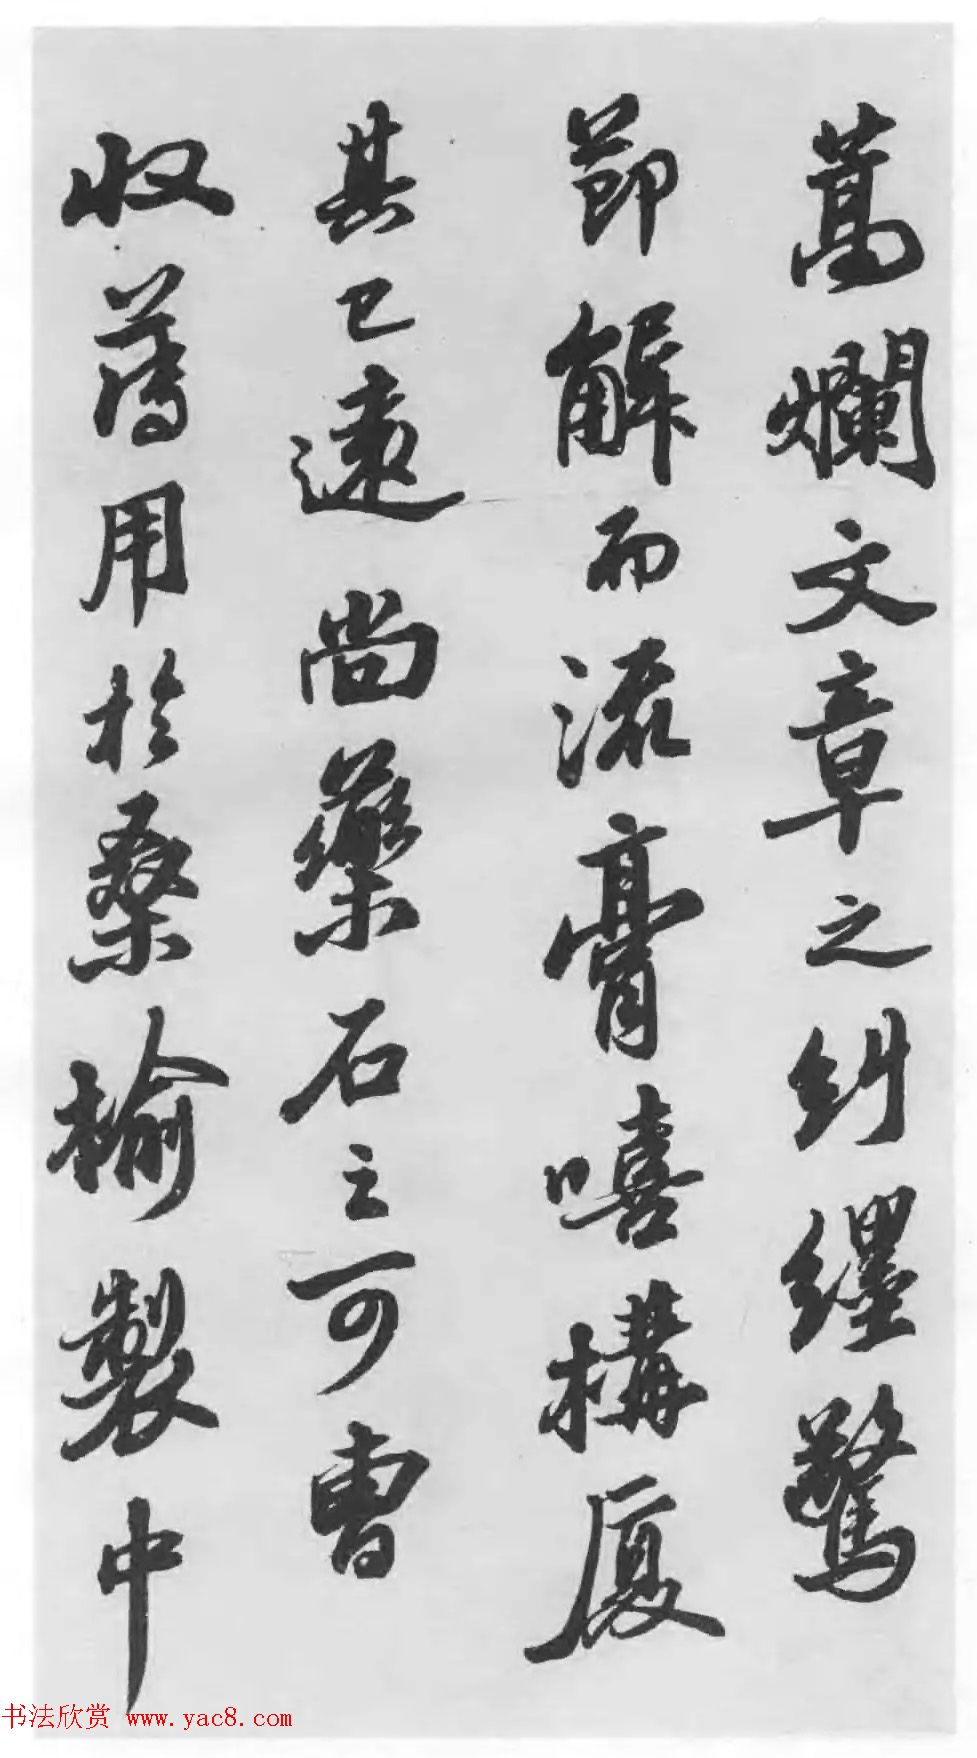 蒿爛文章之糾纏驚
節解而流膏嘻構厦
其已遠尚藥石之可曹
收薄用於桑榆製中
书法欣赏 www.yac8.com